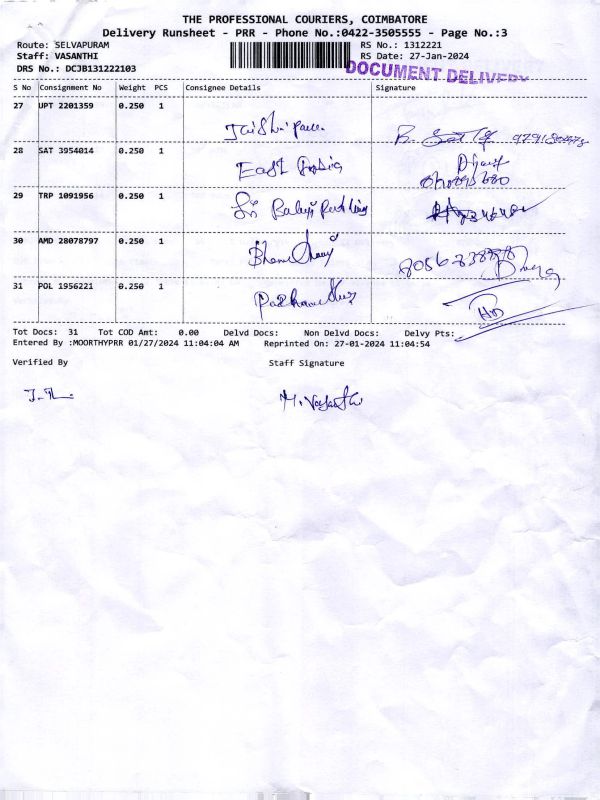 THE PROFESSIONAL COURIERS, COIMBATORE
Delivery Runsheet - PRR - Phone No.:0422-3505555 - Page No.:3
Route: SELVAPURAM RS No.: 1312221
Staff: VASANTHI RS Date: 27-Jan-2024
DRS No.: DCJB131222103 DOCUMENT DELIVERY
S No Consignment No Weight PCS Consignee Details Signature
27 UPT 2201359 0.250 1
28 SAT 3954014 0.250 1
East
29 TRP 1091956 0.250 1
Sri Balaji
30 AMD 28078797 0.250 1
31 POL 1956221 0.250 1
Tot Docs: 31 Tot COD Amt: 0.00 Delvd Docs: Non Delvd Docs: Delvy Pts:
Entered By :MOORTHYPRR 01/27/2024 11:04:04 AM Reprinted On: 27-01-2024 11:04:54
Verified By Staff Signature
M. Vasanthi